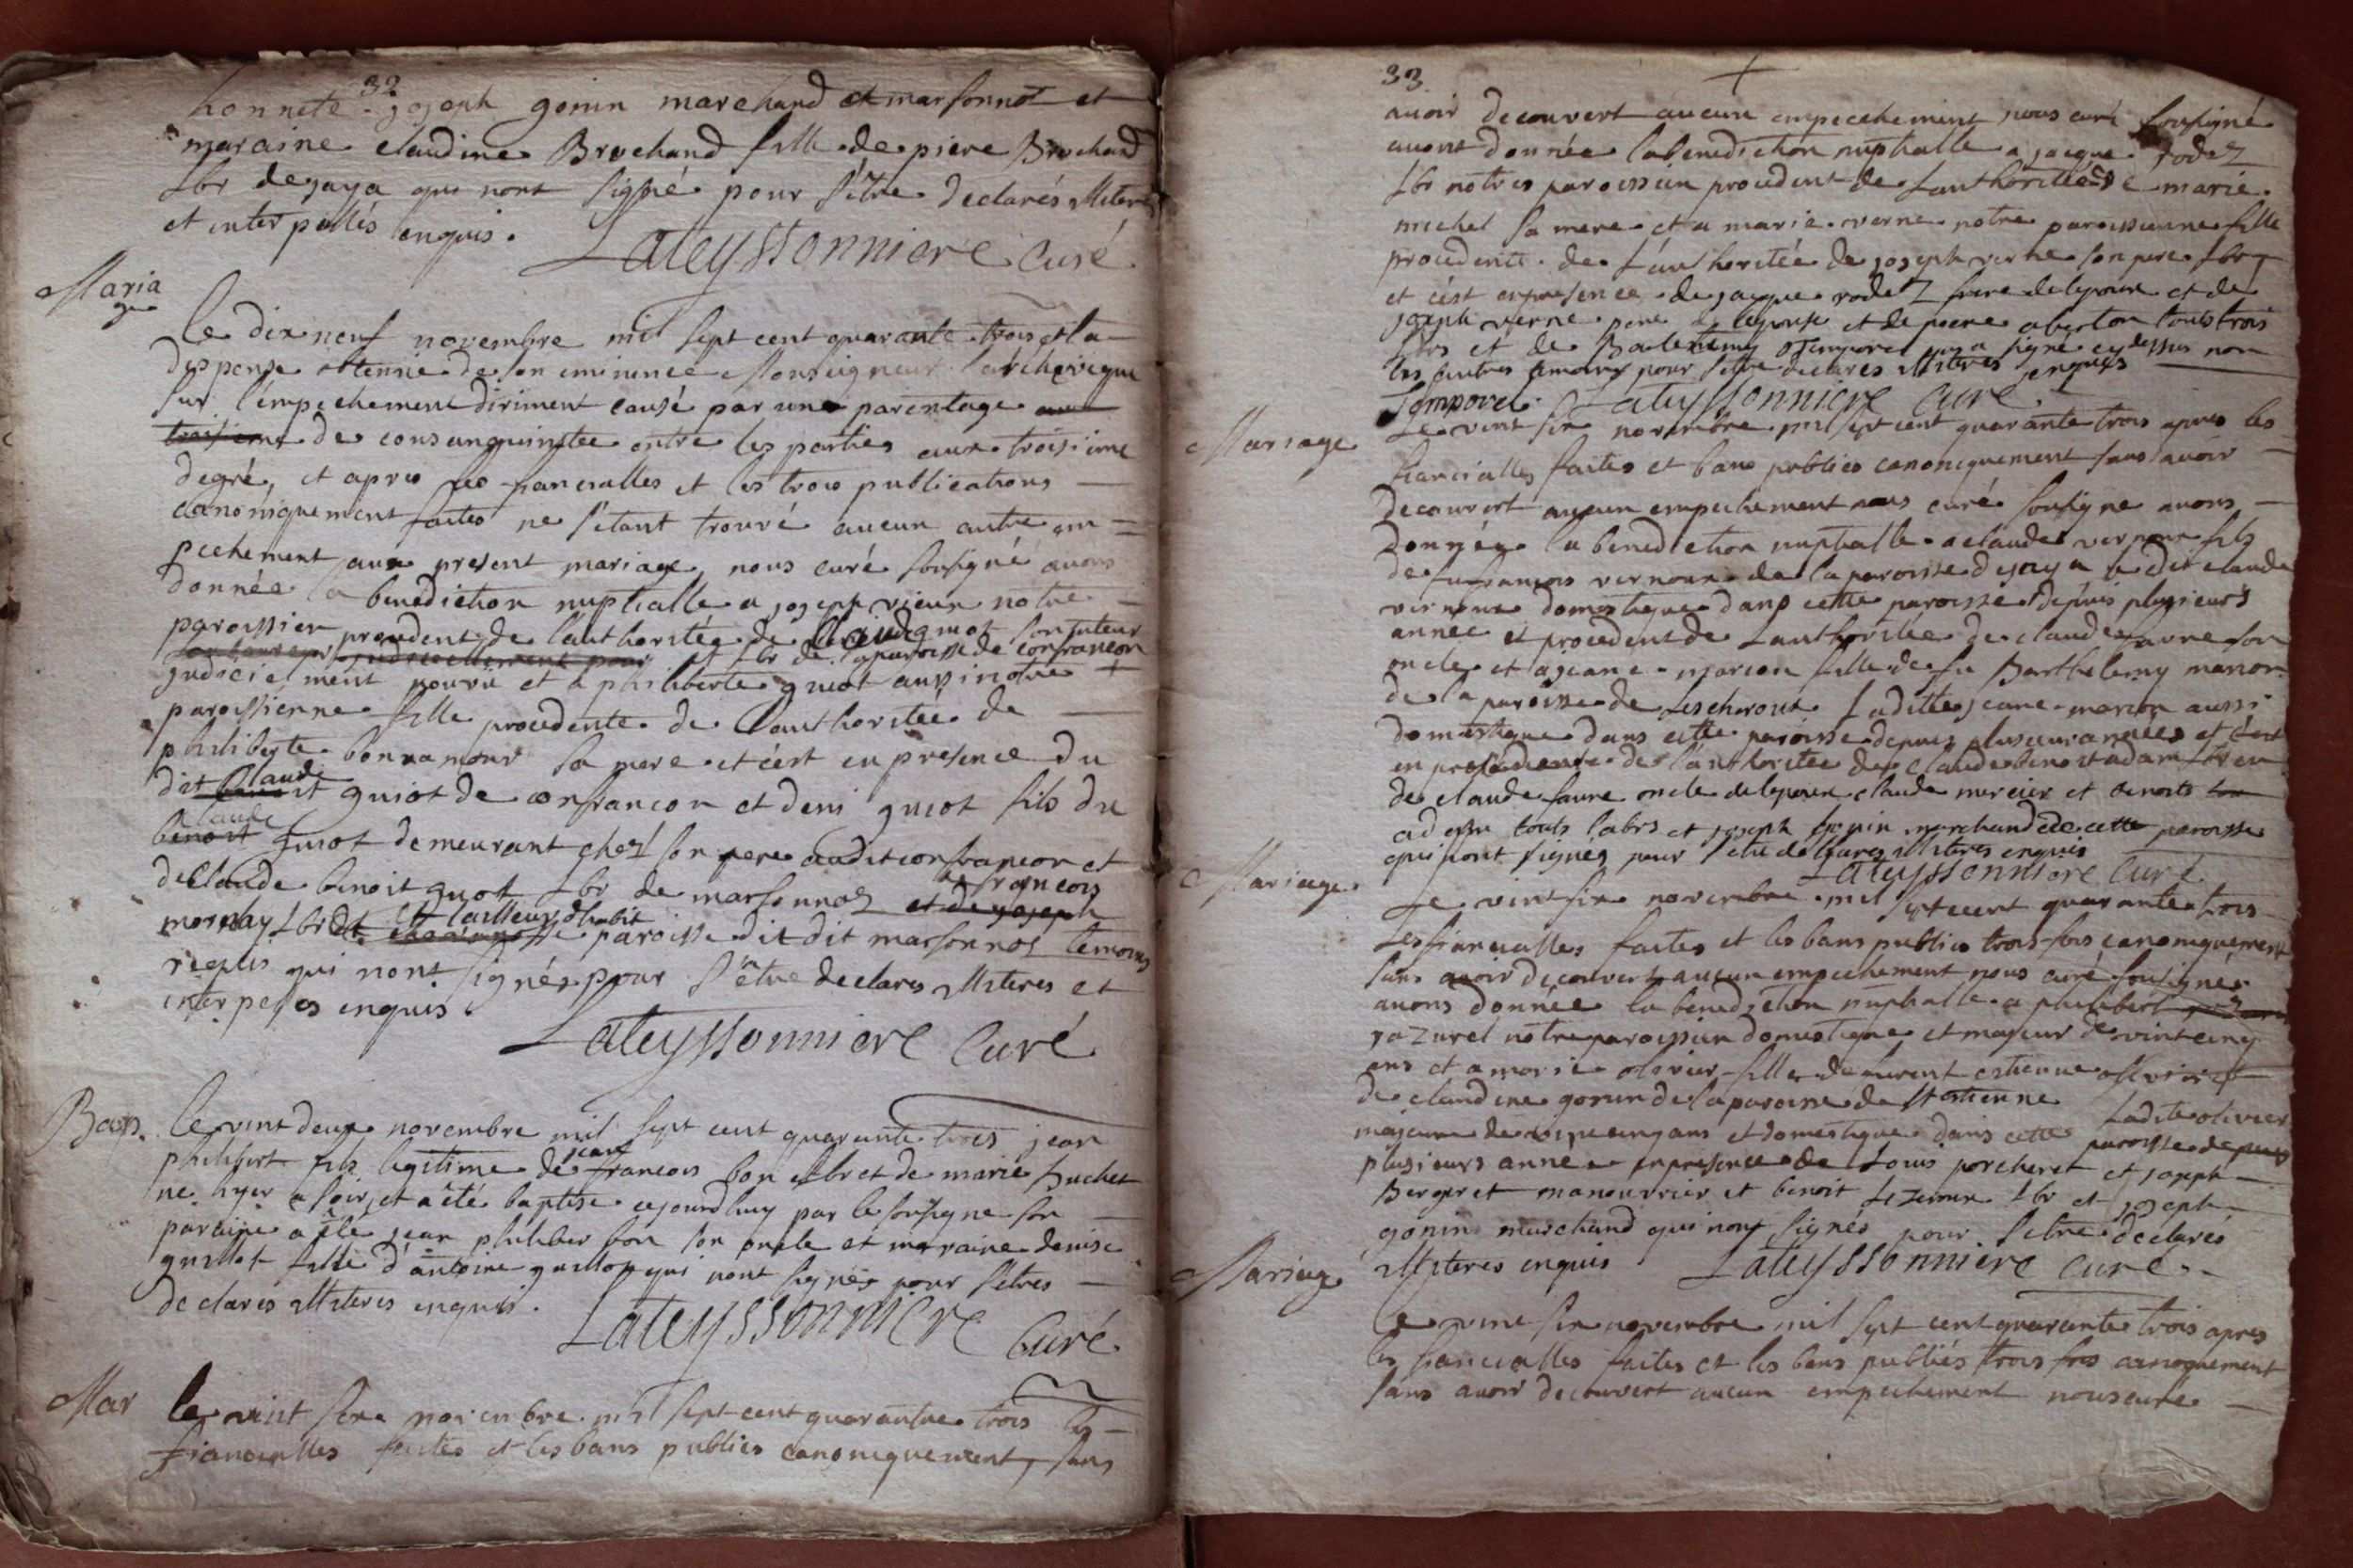 32
honnete joseph gonin marchand a marsonnot et
maraine claudine Brochand fille de piere Brochand
Lbr dejaya qui nont signé pour s'être declarés illiteres
et interpellés enquis. Lateyssonniere Curé
Maria
ge
Le dix neuf novembre mil sept cent quarante trois et la
dispense obtenue de son eminence Monseigneur l'archeveque
sur l'empechement diriment causé par une parentage
troisieme de consanguinitee entre les parties aux troisieme
degré, et apres les fiancialles et les trois publications
canoniquement faites ne s'etant trouvé aucun autre em
pechement aux present mariage, nous curé sousigné avons
donnée la benediction nuptialle a joseph vieux notre
paroissien procedent de l'authoritée de Claude guiot son tuteur
Lbr de la paroisse de confrancon
judiciel ment pourvu et a philiberte guiot aussi notre
paroissienne fille procedente de l'authoritée de
philiberte bonnamour sa mere et c'est en presence du
dit Claude guiot de confrancon et deni guiot fils du
Claude
benoit guiot demeurant chez son pere audit confrancon et
de Claude benoit guiot Lbr de marsonnas et de francois
joseph
mornay Lbr et tailleur d'habit paroisse du dit marsonnos temoins
requis qui nont signés pour s'être declares illiteres et
interpellés enquis.
Lateyssonniere Curé
Bap. Le vint deux novembre mil sept cent quarante trois jean
philibert fils legitime de jean francois bon Lbr et de marie buchet
ne hyer a soir, et a été baptise cejourdhuy par le sousigne son
paraine a été jean philiber bon son oncle et maraine denise
guillot fille d'antoine guillot qui nont signés pour s'etres
declarés illiteres enquis. Lateyssonniere
Curé.
Mar le vint six novembre mil sept cent quarante trois les
fiancialles faites et les bans publies canoniquement, sans
33
avoir decouvert aucun empechement nous curé sousigné
avons donnée la benediction nuptialle a jacque rodez
Lbr notres paroissien procedent de l'authoritée de marie
michel sa mere et a marie verne notre paroissienne fille
procedente de l'authoritée de joseph verne son pere Lbr
et c'est en presence de jacque rodez frere de lepoux et de
joseph verne pere de lepouse et de piere aberton touts trois
Lbrs et de Barlemy temporel qui a signé cy dessus non
les autres temoins pour s'etre declares illiteres enquis
Temporel. Lateyssonniere Curé.
Mariage Le vint six novembre mil sept cent quarante trois apres les
fiancialles faites et bans publies canoniquement sans avoir
decouvert aucun empechement nous curé sousigne avons
donnée la benediction nuptialle a claude vernoux fils
de fu francois vernoux de la paroisse dejaya le dit claude
vernoux domestique dans cette paroisse depuis plusieurs
annee et procedent de l'authoritée de claude favre son
oncle et a jeane marion fille de fu Barthelemy marion
de la paroisse de Lescheroux ladittee jeane marion aussi
domestique dans cette paroisse depuis plusieurs années et c'est
en de l'authoritée de claude benoit adam Lbr en
de claude favre oncle de lepoux claude mercier et benoit
adam touts labrs et joseph gonin marchand de cette paroisse
qui nont signés pour s'etre declares illiteres enquis
Lateyssonniere Curé.
Mariage. Le vint six novembre mil sept cent quarante trois
Les fiancialles faites et les bans publies trois fois canoniquement
sans avoir decouvert aucun empechement nous curé sousigné
avons donnée la benediction nuptialle a philibert
razurel notre paroissien domestique et majeur de vint cinq
ans et a marie olivier fille de laurent estienne olivier et
de claudine gonin de la paroisse de St estienne ladite olivier
majeure de vint cinq ans et domestique dans cette paroisse depuis
plusieurs annee en presence de Louis porcheret et joseph
Bergeret manouvrier et benoit Lbr et joseph
gonin marchand qui nont signés pour s'etre declares
illiteres enquis Lateyssonniere Curé.
Mariage
Le vint six novembre mil sept cent quarante trois apres
les fiancialles faites et les bans publiés trois fois canoniquement
sans avoir decouvert aucun empechement nous curé